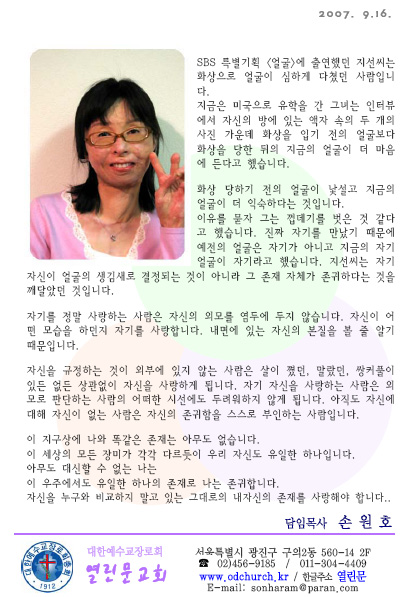 2007. 9.16.
SBS 특별기획 <얼굴>에 출연했던 지선씨는
화상으로 얼굴이 심하게 다쳤던 사람입니
다.
지금은 미국으로 유학을 간 그녀는 인터뷰
에서 자신의 방에 있는 액자 속의 두 개의
사진 가운데 화상을 입기 전의 얼굴보다
화상을 당한 뒤의 지금의 얼굴이 더 마음
에 든다고 했습니다.
화상 당하기 전의 얼굴이 낯설고 지금의
얼굴이 더 익숙하다는 것입니다.
이유를 묻자 그는 껍데기를 벗은 것 같다
고 했습니다. 진짜 자기를 만났기 때문에
예전의 얼굴은 자기가 아니고 지금의 자기
얼굴이 자기라고 했습니다. 지선씨는 자기
자신이 얼굴의 생김새로 결정되는 것이 아니라 그 존재 자체가 존귀하다는 것을
깨달았던 것입니다.
자기를 정말 사랑하는 사람은 자신의 외모를 염두에 두지 않습니다. 자신이 어
떤 모습을 하던지 자기를 사랑합니다. 내면에 있는 자신의 본질을 볼 줄 알기
때문입니다.
자신을 규정하는 것이 외부에 있지 않는 사람은 살이 쪘던, 말랐던, 쌍커풀이
있든 없든 상관없이 자신을 사랑하게 됩니다. 자기 자신을 사랑하는 사람은 외
모로 판단하는 사람의 어떠한 시선에도 두려워하지 않게 됩니다. 아직도 자신에
대해 자신이 없는 사람은 자신의 존귀함을 스스로 부인하는 사람입니다.
이 지구상에 나와 똑같은 존재는 아무도 없습니다.
이 세상의 모든 장미가 각각 다르듯이 우리 자신도 유일한 하나입니다.
아무도 대신할 수 없는 나는
이 우주에서도 유일한 하나의 존재로 나는 존귀합니다.
자신을 누구와 비교하지 말고 있는 그대로의 내자신의 존재를 사랑해야 합니다..
담임목사 손 원 호
대한예수교장로회총회
1912
대한예수교장로회
열린문교회
서울특별시 광진구 구의2동 560-14 2F
☎ 02)456-9185 / 011-304-4409
www.odchurch.kr / 한글주소 열린문
E-mail: sonharam@paran.com